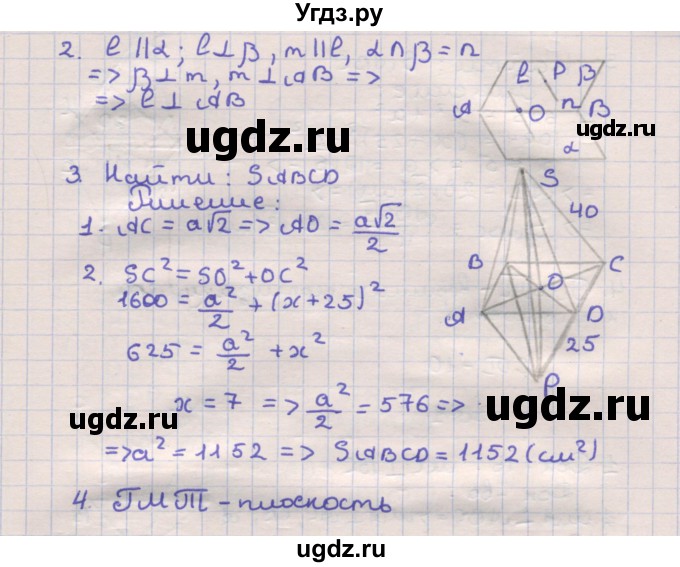 Угдз.ру
2. l ∥ α; l ⊥ β, m ∥ l, α ∩ β = n
=> β ⊥ m, m ⊥ AB =>
=> l ⊥ AB
l P β
A O n B
α
ugdz.ru
ugdz.ru
3. Найти: SABCD
Решение:
1. AC = a√2 => AO = a√2/2
2. SC² = SO² + OC²
1600 = a²/2 + (x+25)²
625 = a²/2 + x²
x = 7 => a²/2 = 576 =>
=> a² = 1152 => SABCD = 1152 (см²)
S
40
B C
O
A D
25
P
ugdz.ru
ugdz.ru
ugdz.ru
4. ГМТ - плоскость
ugdz.ru